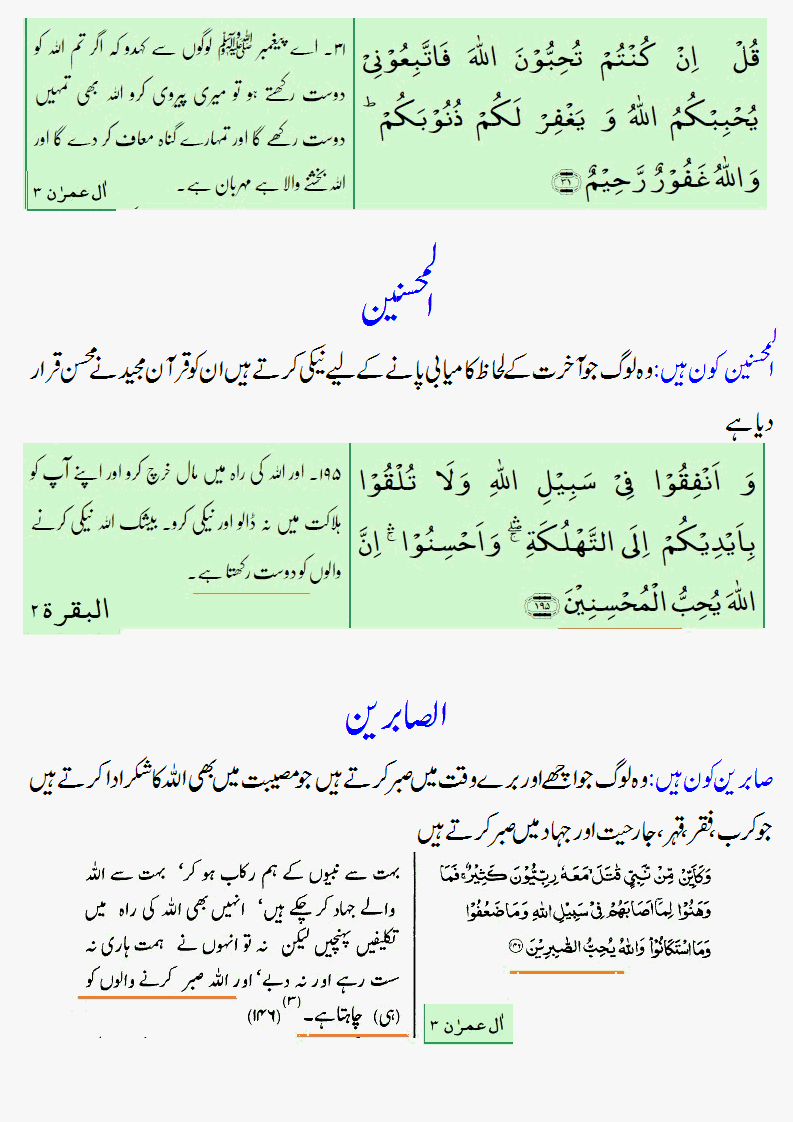 قُلْ اِنْ كُنْتُمْ تُحِبُّوْنَ اللّٰهَ فَاتَّبِعُوْنِيْ
يُحْبِبْكُمُ اللّٰهُ وَ يَغْفِرْ لَكُمْ ذُنُوْبَكُمْ ؕ
وَ اللّٰهُ غَفُوْرٌ رَّحِيْمٌ ۳۱
۳۱۔ اے پیغمبر ﷺ لوگوں سے کہدو کہ اگر تم اللہ کو
دوست رکھتے ہو تو میری پیروی کرو اللہ بھی تمہیں
دوست رکھے گا اور تمہارے گناہ معاف کر دے گا اور
اللہ بخشنے والا ہے مہربان ہے۔
اٰل عمرٰن ۳
المحسنین
المحسنین کون ہیں: وہ لوگ جو آخرت کے لحاظ کامیابی پانے کے لیے نیکی کرتے ہیں ان کو قرآن مجید نے محسن قرار
دیا ہے
وَ اَنْفِقُوْا فِيْ سَبِيْلِ اللّٰهِ وَلَا تُلْقُوْا
بِاَيْدِيْكُمْ اِلَى التَّهْلُكَةِ ۛۚ وَ اَحْسِنُوْا ۛۚ اِنَّ
اللّٰهَ يُحِبُّ الْمُحْسِنِيْنَ ۱۹۵
۱۹۵۔ اور اللہ کی راہ میں مال خرچ کرو اور اپنے آپ کو
ہلاکت میں نہ ڈالو اور نیکی کرو۔ بیشک اللہ نیکی کرنے
والوں کو دوست رکھتا ہے۔
البقرة ۲
الصابرین
صابرین کون ہیں: وہ لوگ جو اچھے اور برے وقت میں صبر کرتے ہیں جو مصیبت میں بھی اللہ کا شکر ادا کرتے ہیں
جو کرب، فقر، قہر، جارحیت اور جہاد میں صبر کرتے ہیں
وَكَاَيِّنْ مِّنْ نَّبِيٍّ قٰتَلَ مَعَهٗ رِبِّيُّوْنَ كَثِيْرٌ ۚ فَمَا
وَهَنُوْا لِمَاۤ اَصَابَهُمْ فِيْ سَبِيْلِ اللّٰهِ وَمَا ضَعُفُوْا
وَمَا اسْتَكَانُوْا ؕ وَاللّٰهُ يُحِبُّ الصّٰبِرِيْنَ ۱۴۶
بہت سے نبیوں کے ہم رکاب ہو کر، بہت سے اللہ
والے جہاد کر چکے ہیں، انہیں بھی اللہ کی راہ میں
تکلیفیں پہنچیں لیکن نہ تو انہوں نے ہمت ہاری نہ
سست رہے اور نہ دبے، اور اللہ صبر کرنے والوں کو
(ہی) چاہتا ہے۔ (۳) (۱۴۶)
اٰل عمرٰن ۳